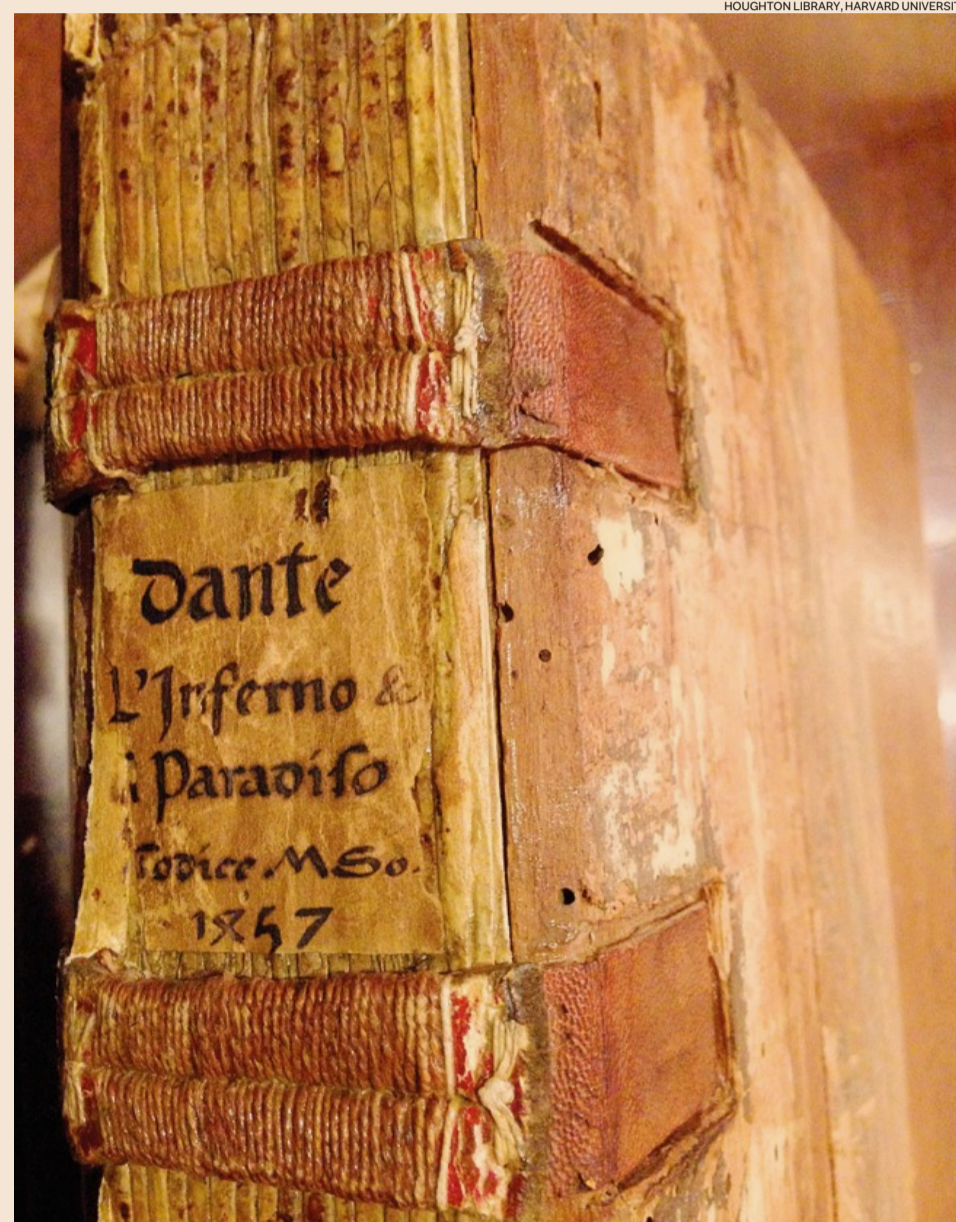 HOUGHTON LIBRARY, HARVARD UNIVERSIT
Dante
L'Inferno &
Paradiſo
Codice MSo.
1857